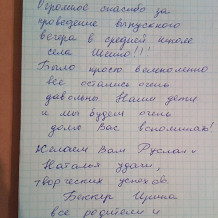 Огромное спасибо за
проведение выпускного
вечера в средней школе
села Шипо!!!
Было просто великолепно
все остались очень
довольны. Наши дети
и мы будем очень
долго Вас вспоминать!
Желаем Вам Руслан и
Наталья удачи,
творческих успехов.
Ирина
все родители и